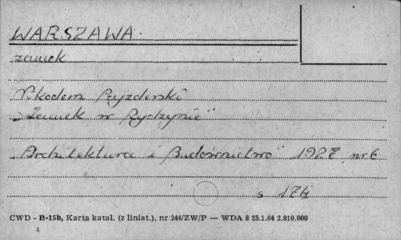 WARSZAWA
zamek
Nikodem Pajzderski
„Zamek w Rydzynie”
„Architektura i Budownictwo” 1928 nr 6
s 174
CWD - B-15b, Karta katal. (z liniat.), nr 244/ZW/P — WDA 8 25.1.64 2.010.000